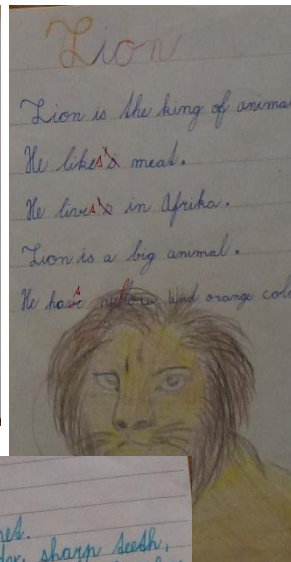 Lion
Lion is the king of anima
He likes's meat.
He lives's in Afrika.
Lion is a big animal.
He has and orange colo
sharp teeth,